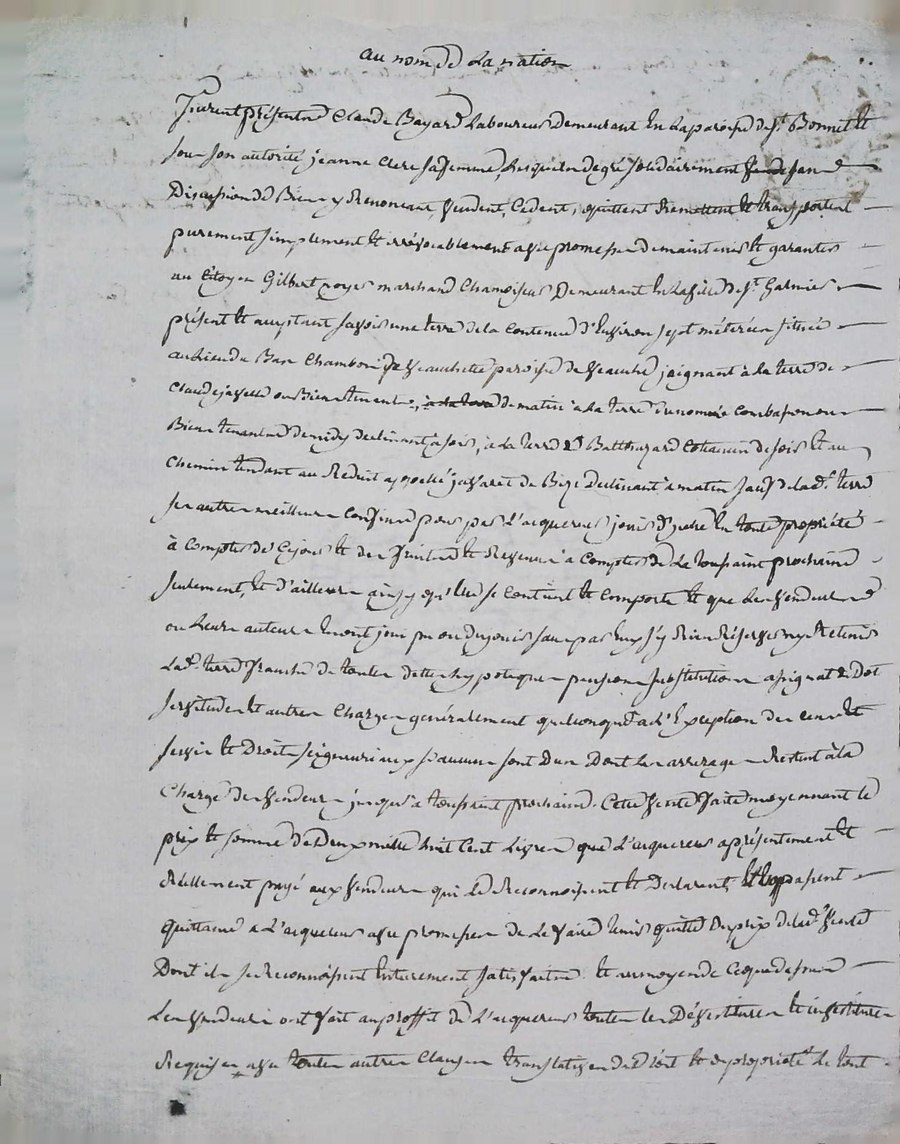 au nom de la nation
furent présents Claude Bayard Laboureur Demeurant en la paroisse de st. Bonnet et
sous son autorité jeanne clere sa femme, lesquels de gré solidairement sans
Discussion de Biens y Renonceant, vendent, cedent, quittent Remettent et transportent
purement simplement et irrévocablement avec promesse de maintenir et garantir
au Citoyen Gilbert noyer marchand Chamoiseur Demeurant en la ville de st. Galmier
présent et acceptant savoir une terre de la contenue d'environ sept métérées située
au lieu du Bas Chambon paroisse de veauche joignant à la terre de
Claude javelle ou Bien tenants, à la terre de matin à la terre d'
Bien tenants de midy declinant à soir, à la terre de Balthazard de soir et au
chemin tendant au de Bize declinant à matin sauf de lad. terre
ses autres meilleurs confins pour par l'acquereur jouir d'icelle en toute propriété
à Compter de Cejour et des fruits et Revenus à Compter de La toussaint prochaine
seulement, et d'ailleurs ainsy qu'elle se contient et comporte et que les vendeurs
ou leurs auteurs en ont joui pu ou du jouir sans par eux s'y Rien Réserver ny Retenir
Lad. terre franche de toutes dettes hypoteques pensions substitutions assignat de Dot
servitudes et autres Charges generalement quelconques à l'Exception des cens et
servis et Droits seigneuriaux s'aucuns sont dus Dont les arrerages Restent à la
Charge des vendeurs jusqu'à toussaint prochaine. Cette vente faite moyennant le
prix et somme de Deux mille huit Cent Livres que l'acquereur a présentement et
Réellement payé aux vendeurs qui le Reconnoissent et Declarent, et en passent
quittance à l'acquereur avec promesse de le faire tenir quitte du prix de lad. vente
Dont ils se Reconnoissent entierement satisfaits et au moyen de Ce que dessus
Les vendeurs ont fait au proffit de L'acquereur toutes les Dévestitures et investitures
Requises avec toutes autres Clauses translatives de Droit et de propriété le tout